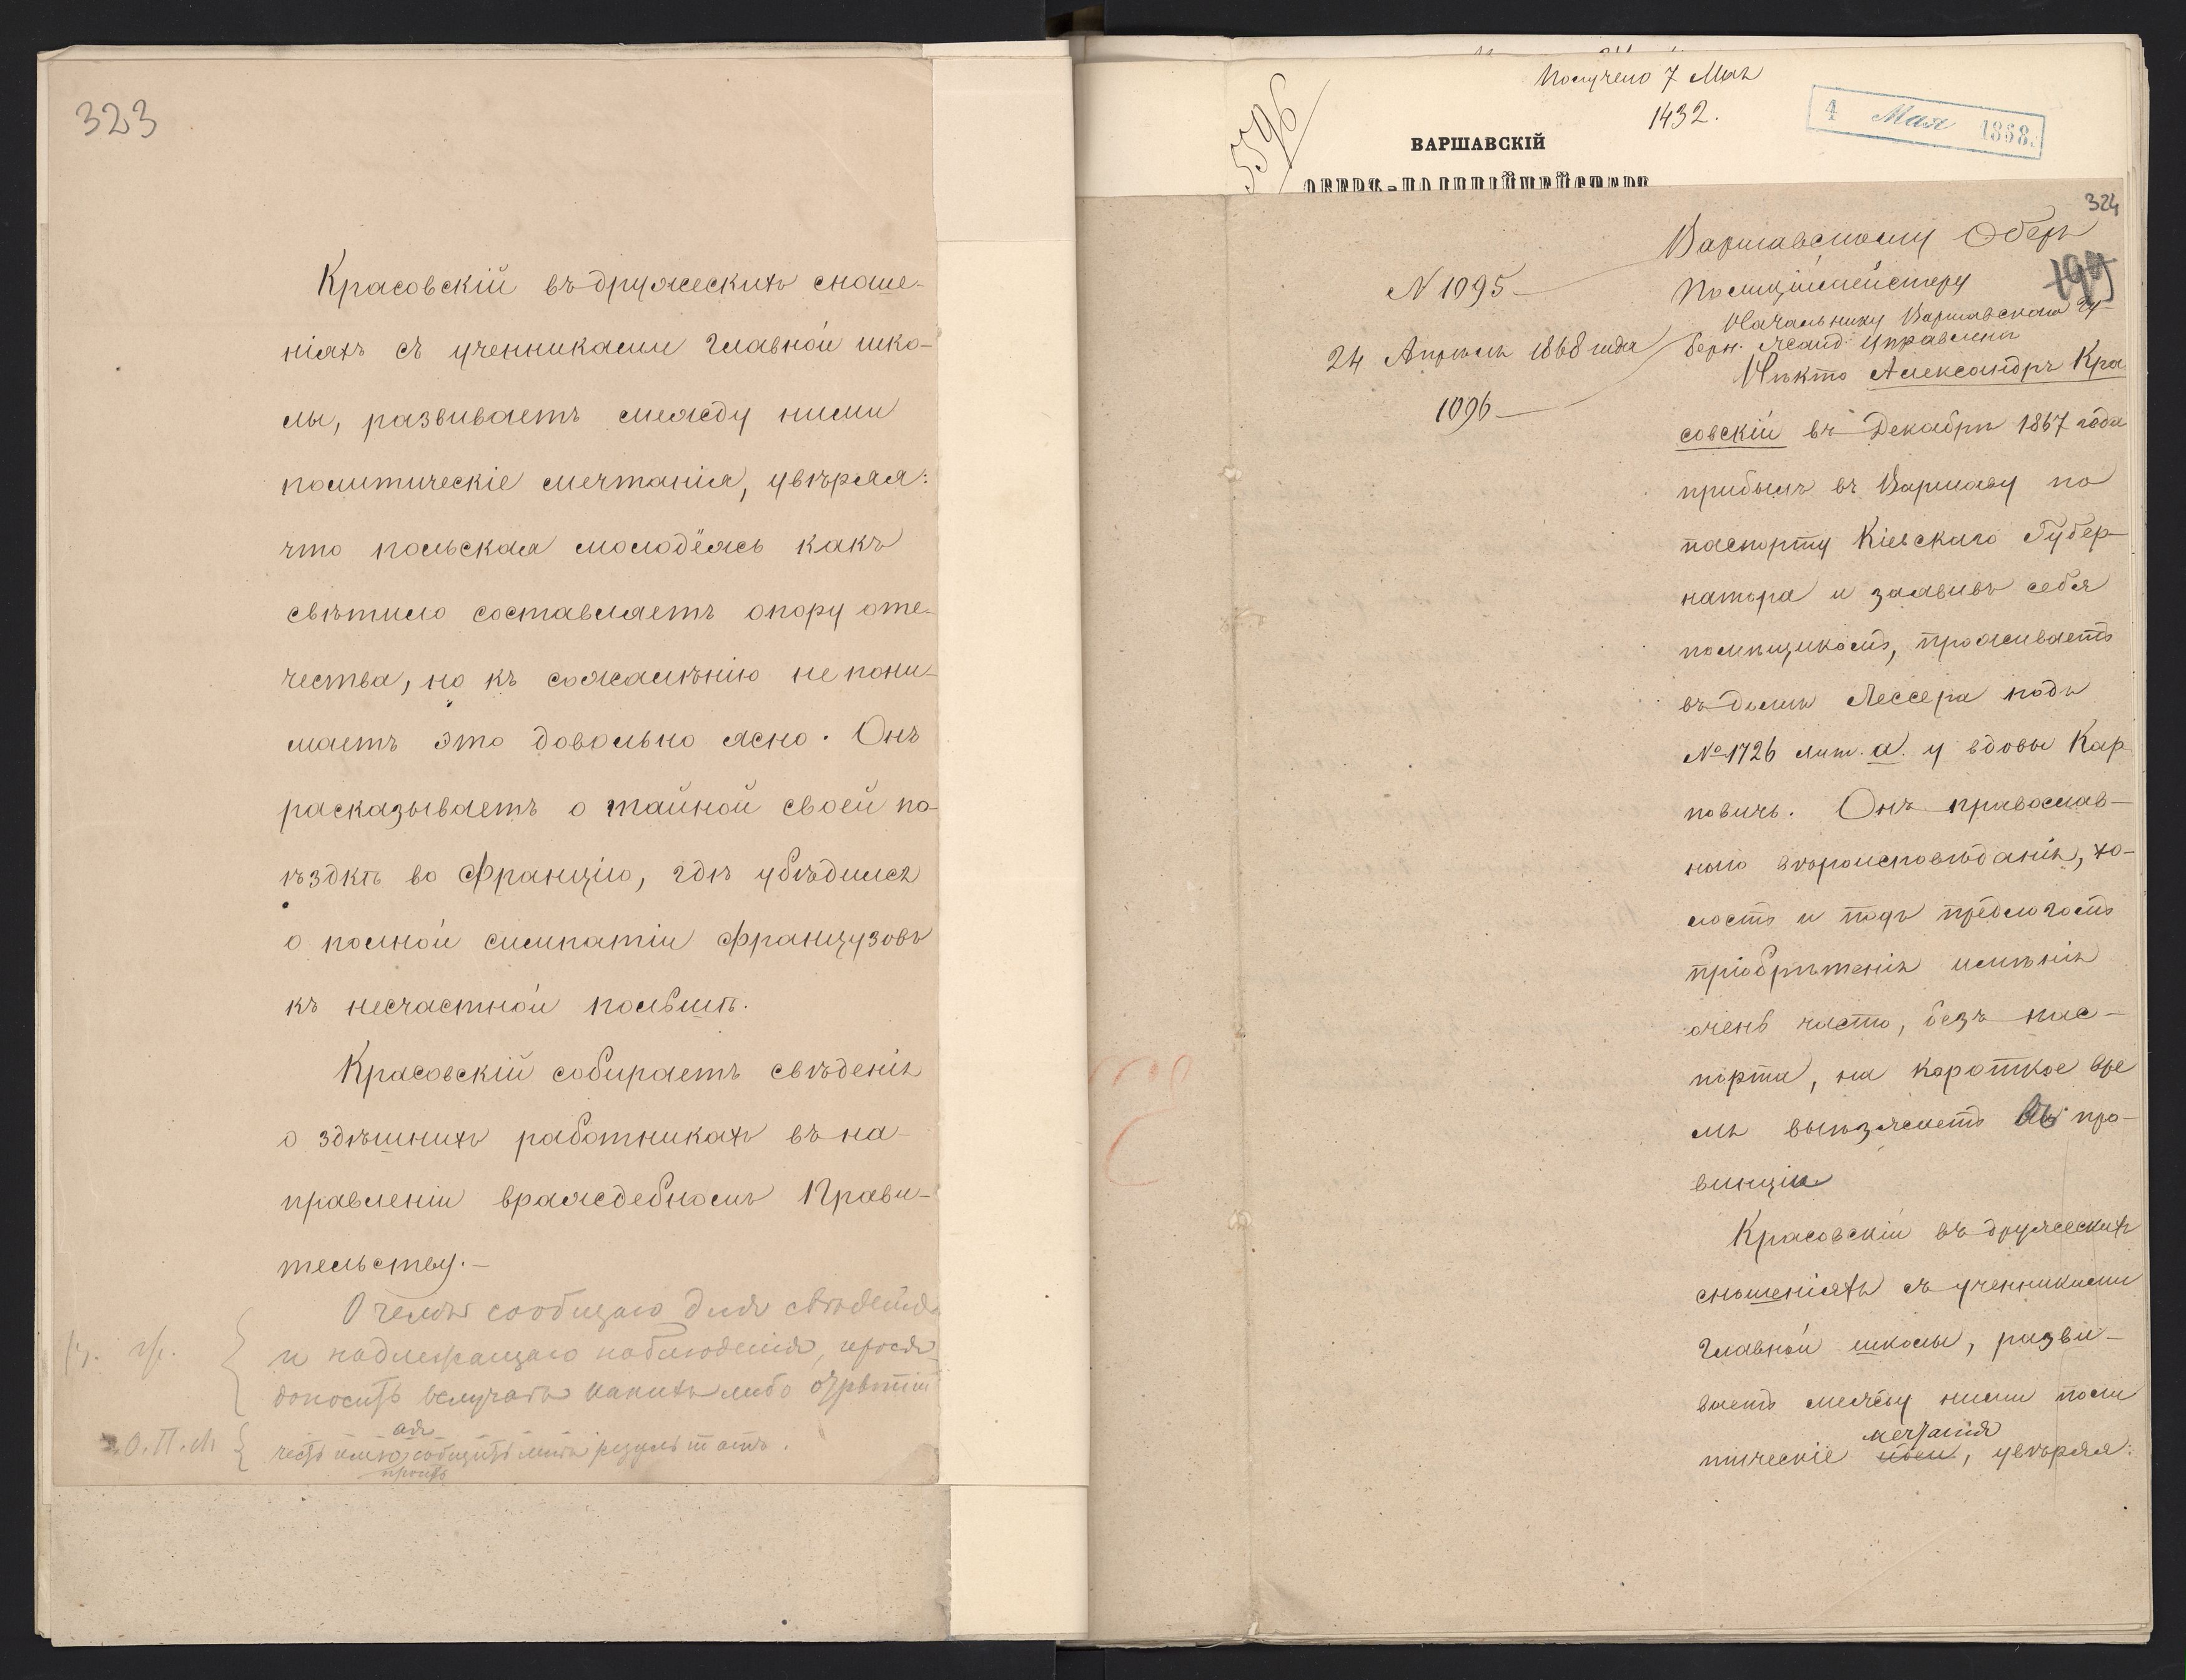 323
Красовскій въ дружескихъ сноше-
ніяхъ съ ученниками главной шко-
лы, развиваетъ между ними
политическіе мечтанія, увѣряя:
что польская молодёжь какъ
свѣтило составляетъ опору оте-
чества, но къ сожалѣнію не пони-
маетъ это довольно ясно. Онъ
расказываетъ о тайной своей по-
ѣздкѣ во Францію, гдѣ убѣдился
о полной симпатіи французовъ
къ несчастной польшѣ.
Красовскій собираетъ свѣденія
о здѣшнихъ работникахъ въ на-
правленіи враждебномъ Прави-
тельству.—
О чемъ сообщаю для свѣденія
и надлежащаго наблюденія, прося
доносить въ случаѣ какихъ либо
О.П.М
честь имѣю сообщить мнѣ результатъ.
просить
Получено 7 Мая
1432.
5596
4 Мая 1868.
ВАРШАВСКІЙ
ОБЕРЪ-ПОЛИЦІЙМЕЙСТЕРЪ
324
199
Варшавскому Оберъ
N 1095—
Полиціймейстеру
Начальнику Варшавскаго Гу-
24 Апрѣля 1868 года
берн. Жанд. Управленія
Нѣкто Александръ Кра
1096—
совскій въ Декабрѣ 1867 года
прибылъ въ Варшаву по
паспорту Кіевскаго Губер-
натора и заявивъ себя
помѣщикомъ, проживаетъ
въ домѣ Лессера подъ
№ 1726 лит. а. у вдовы Кар
повичъ. Онъ православ-
наго вѣроисповѣданія, хо-
лостъ и подъ предлогомъ
пріобрѣтенія имѣнія
очень часто, безъ пас-
порта, на короткое вре
мя выѣзжаетъ въ про-
винціи
Красовскій въ дружескихъ
сношеніяхъ съ ученниками
главной школы, разви-
ваетъ между ними поли
мечтанія
тическіе идеи, увѣряя: